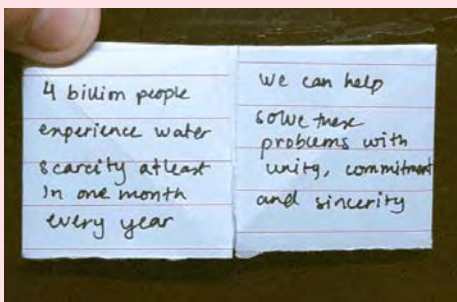 4 billion people
experience water
scarcity atleast
In one month
every year
We can help
solve these
problems with
unity, commitment
and sincerity